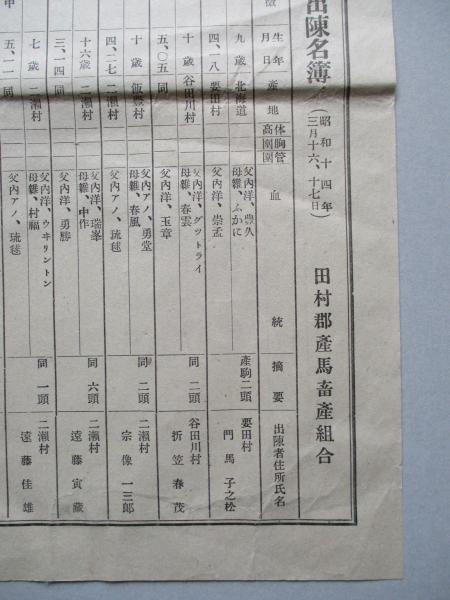 出陳名簿
(昭和十四年
三月十六、十七日)
田村郡產馬畜產組合
生年月日
產地
体高
胸圍
管圍
血統
摘要
出陳者住所氏名
九歳 北海道
父內洋、豊久
母雜、ふかに
產駒二頭
要田村
門馬子之松
四、一八 要田村
父內洋、崇孟
十歳 谷田川村
父內洋、グツトライ
母雜、春雲
同 二頭
谷田川村
折笠春茂
五、〇五 同
父內洋、玉章
十歳 飯豊村
父內アノ、勇堂
母雜、春風
同 二頭
二瀬村
宗像一三郎
四、二七 二瀬村
父內アノ、琉毬
十六歳 二瀬村
父內洋、瑞峯
母雜、中作
同 六頭
二瀬村
遠藤寅藏
三、一四 同
父內洋、勇勝
七歳 二瀬村
父內洋、ウヰリントン
母雜、村福
同 一頭
二瀬村
遠藤佳雄
五、一一 同
父內アノ、琉毬